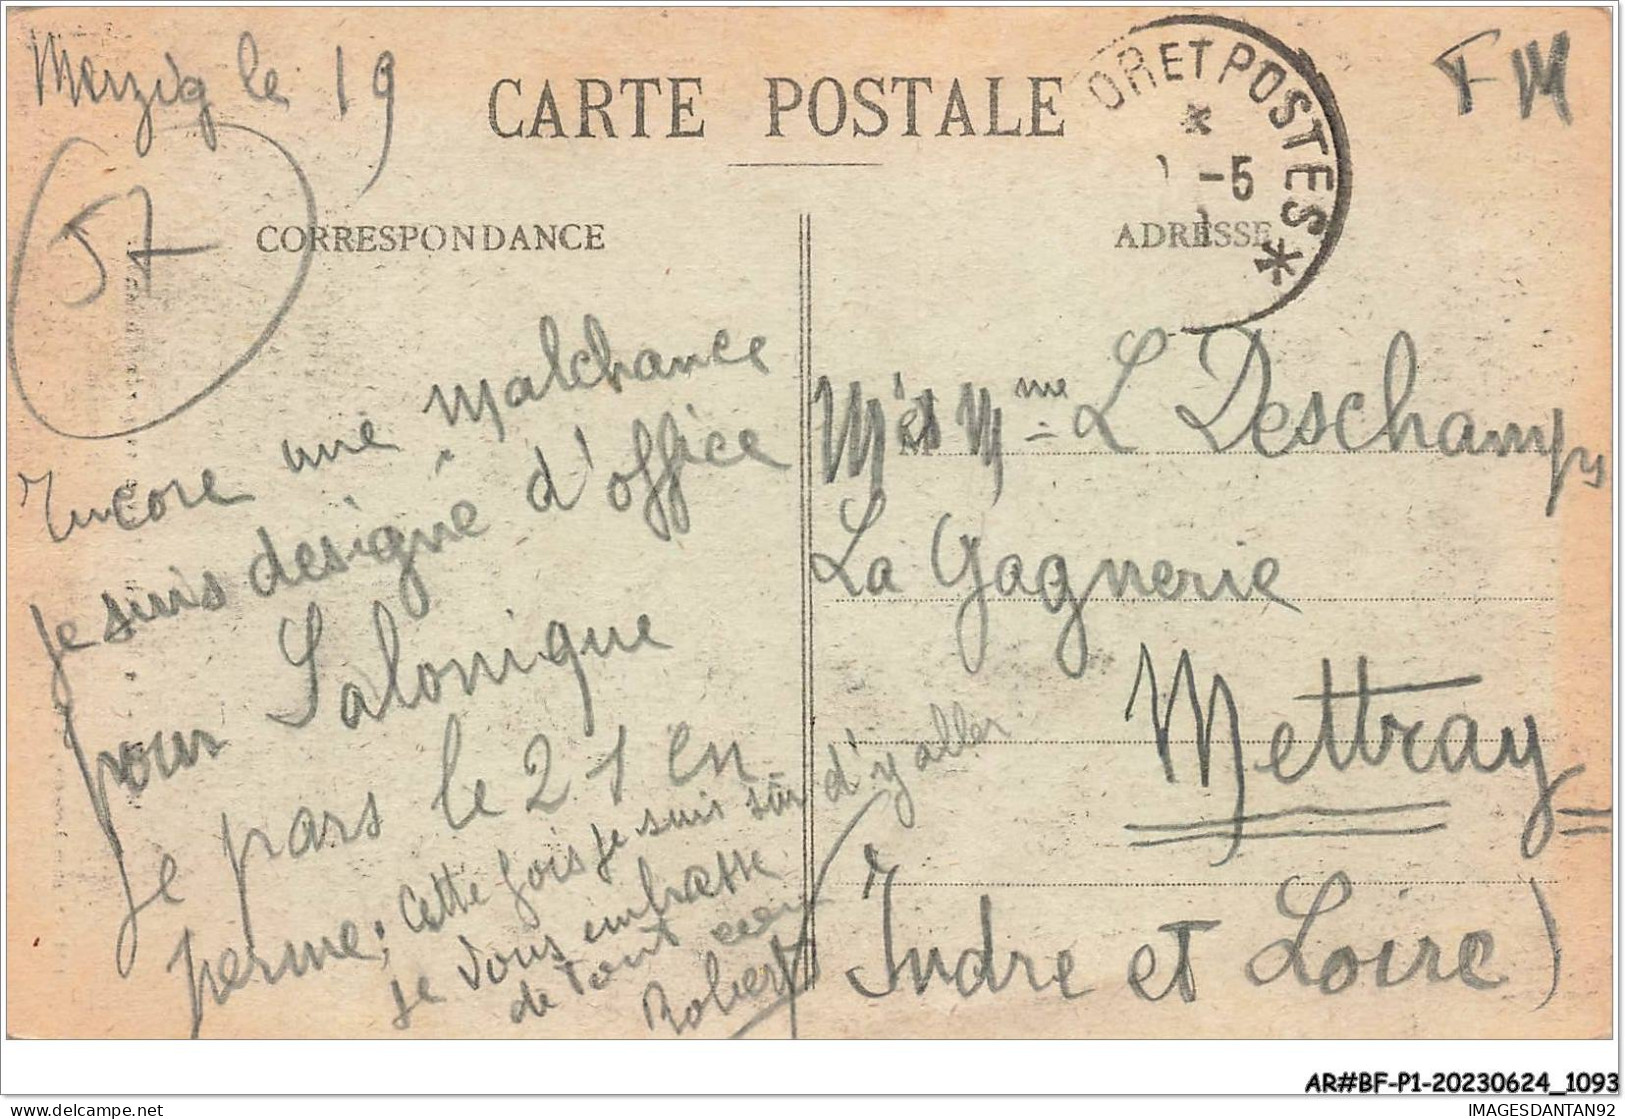 Merzig le 19
CARTE POSTALE
ORET POSTES
-5
F M
57
CORRESPONDANCE
ADRESSE
Encore une malchance
je suis designé d'office
pour Salonique
je pars le 21 en
perme; cette fois je suis sûr d'y aller
je vous embrasse
de tout coeur
Robert
Mr et Mme L Deschamps
La Gagnerie
Mettray
Indre et Loire)
AR#BF-P1-20230624_1093
IMAGESDANTAN92